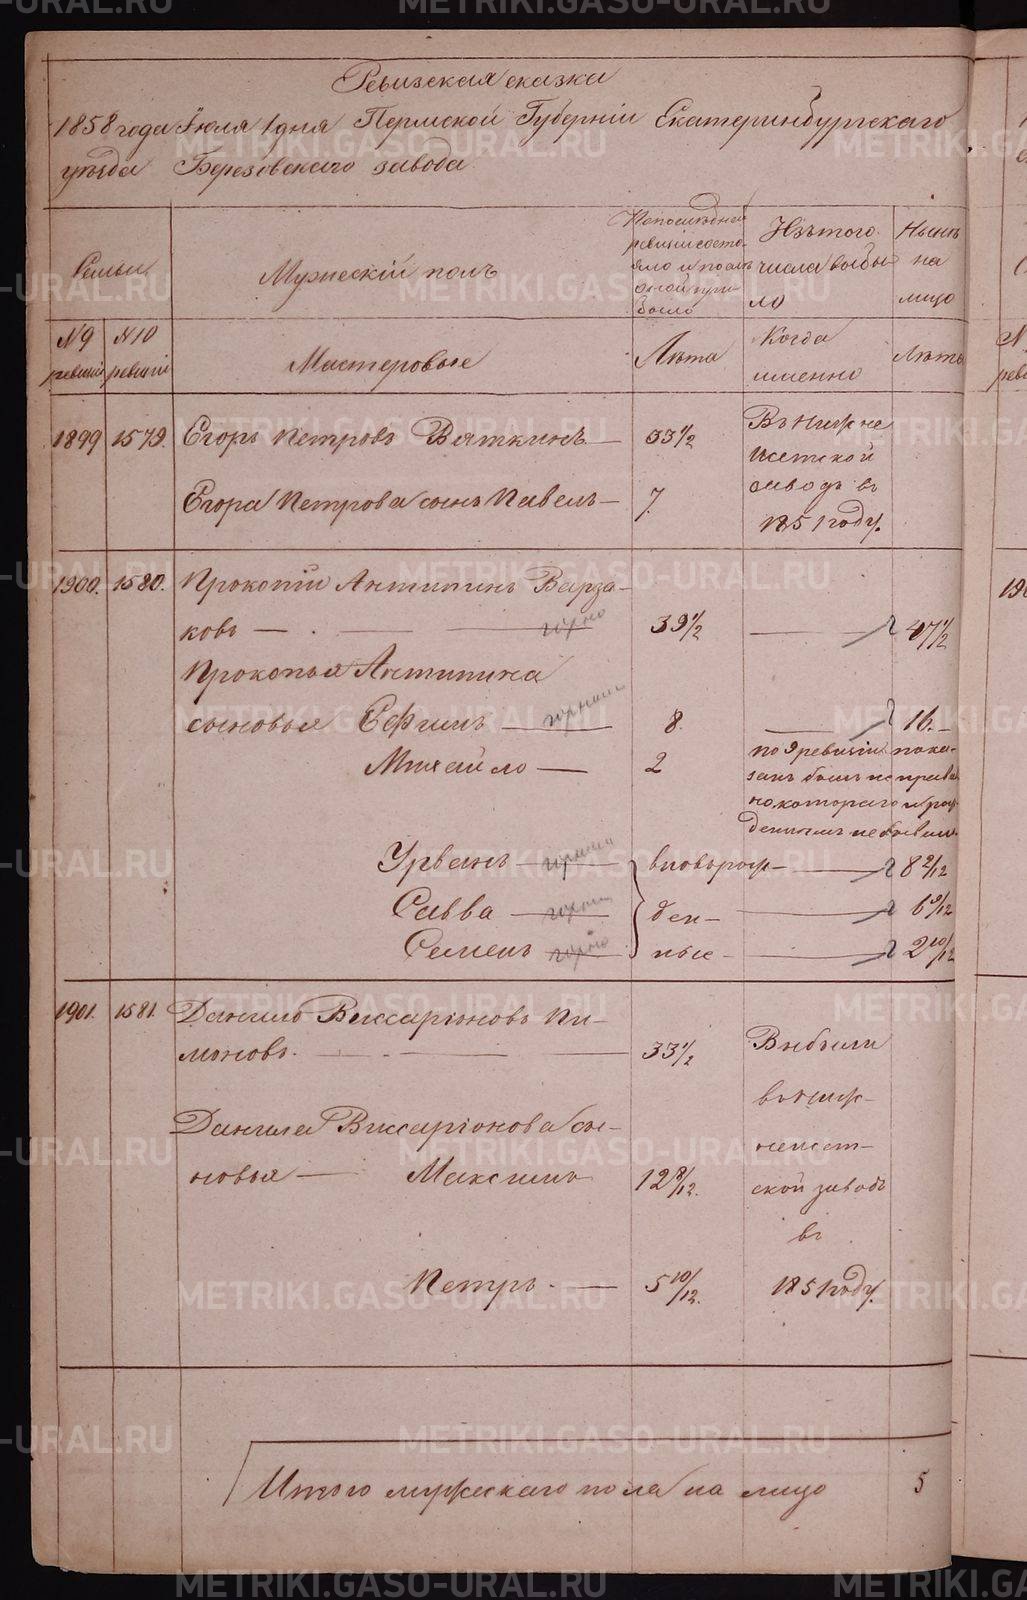 Ревизская сказка
1858 года Іюля 1 дня Пермской Губерніи Екатеринбургскаго
уѣзда Березовскаго завода
Семьи
Мужескій полъ
По последней
ревизіи состо-
яло и послѣ
оной при
было
Изъ того
числа выбы
ло
Нынѣ
на
лицо
№9
ревизіи
№10
ревизіи
Мастеровые
Лѣта
Когда
именно
Лѣты
1899 1579. Егоръ Петровъ Вяткинъ — 33 1/2
Въ Нижне
Исетской
заводъ въ
1851 году.
Егора Петрова сынъ Павелъ — 7.
1900. 1580. Прокопій Антипинъ Варза-
ковъ — горно 39 1/2 — 47 1/2
Прокопья Антипина
сыновья Ефимъ — горныи 8. — 16. —
Михайло — 2
по 9 ревизіи пока-
занъ былъ неправиль
но, котораго и рож-
деніемъ не бывало.
Урванъ — горныи вновьрож- — 8 2/12
Савва — ден- — 6 9/12
Семенъ — горно ные — 2 10/12
1901. 1581. Данило Виссаріоновъ Пи-
моновъ. — 33 1/2
Выбыли
въ Ниж-
неисет-
ской заводъ
въ
1851 году.
Данила Виссаріонова сы-
новья — Максимъ 12 8/12.
Петръ. — 5 10/12.
Итого мужескаго пола на лицо 5
METRIKI.GASO-URAL.RU